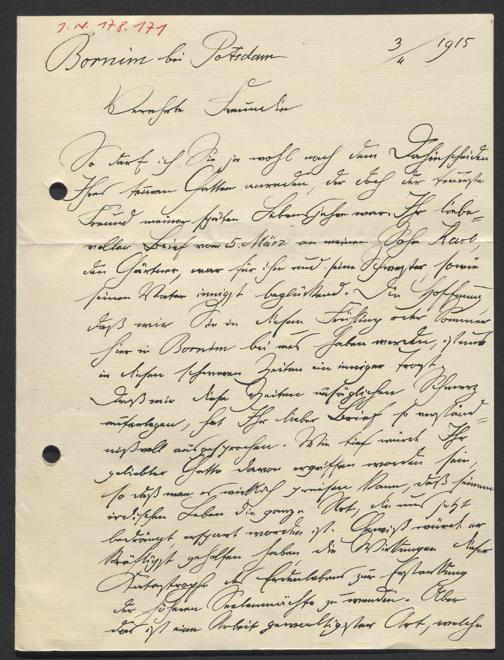 J. N. 178.171
Bornim bei Potsdam 3/4 1915
Verehrte Freundin
So darf ich Sie ja wohl nach dem Dahinscheiden
Ihres teuren Gatten anreden, der doch der teuerste
Freund meiner späten Lebensjahre war. Ihr liebe-
voller Brief vom 5. März an meinen Sohn Karl,
den Gärtner, war für ihn und seine Schwester, sowie
seinen Vater innigst beglückend. Die Hoffnung
daß wir Sie in diesem Frühling oder Sommer
hier in Bornim bei uns haben werden, ist uns
in diesen schweren Zeiten ein inniger Trost.
Daß mir diese Zeiten unsäglichen Schmerz
auferlegen, hat Ihr lieber Brief so verständ-
nißvoll ausgesprochen. Wie tief würde Ihr
geliebter Gatte davon ergriffen worden sein,
so daß man es wirklich preisen kann, daß seinem
irdischen Leben die ganze Not, die uns jetzt
bedrängt erspart worden ist. Gewiß würde er
kräftigst geholfen haben die Wirkungen dieser
Katastrophe des Erdenlebens zur Erstarkung
der höheren Seelenmächte zu wenden. Aber
das ist eine Arbeit gewaltigster Art, welche